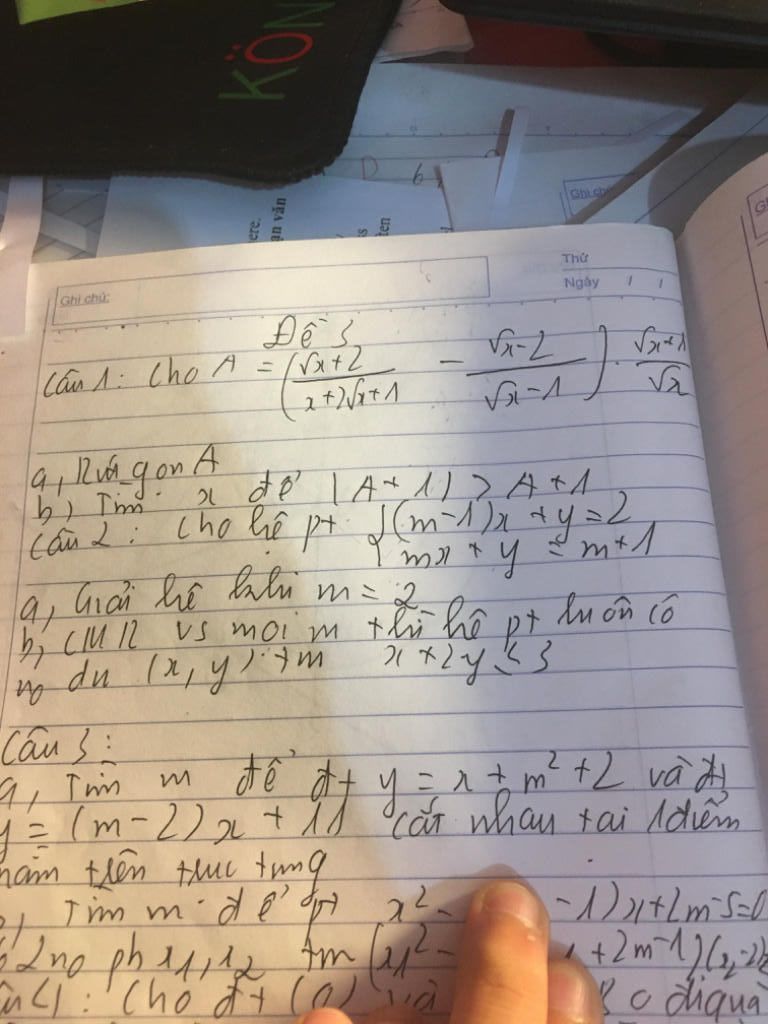 KÖN
D 6
Ghi chú
ere.
ạn văn
ss
ten
Ghi chú:
Thứ
Ngày / /
Đề 3
Câu 1: Cho A = (√x+2 / x+2√x+1 − √x−2 / √x−1) . √x+1 / √x
a, Rút gọn A
b, Tìm x để |A+1| > A+1
Câu 2: Cho hệ pt { (m-1)x + y = 2
mx + y = m+1
a, Giải hệ khi m = 2
b, CMR vs mọi m thì hệ pt luôn có
no dn (x, y) tm x + 2y ≤ 3
Câu 3:
a, Tìm m để đt y = x + m² + 2 và đt
y = (m-2)x + 11 cắt nhau tại 1 điểm
nằm trên trục tung
Tìm m để pt x² - -1)x+2m-5=0
2 no pb x1, x2 tm (x1² - +2m-1)(x2-2)
Cho đt (a) và O đi qua